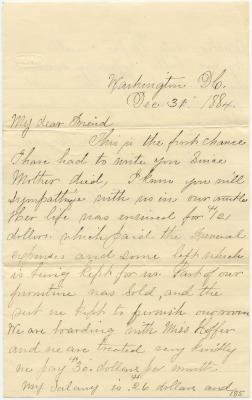 Washington D.C.
Dec 31st 1884.
My dear Friend
This is the first chance
I have had to write you since
Mother died, I know you will
Sympathise with us in our trouble
Her life was insured for
dollars which paid the funeral
expenses and some left which
is being kept for us. Part of our
furniture was sold, and the
rest we kept to furnish our room
We are boarding with Miss
and we are treated very kindly
we pay 30 dollars per month
My Salary is 26 dollars and
185